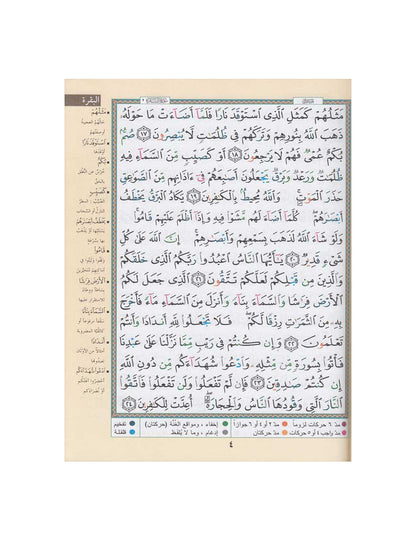 البقرة
مَثَلُهُمْ كَمَثَلِ ٱلَّذِى ٱسْتَوْقَدَ نَارًا فَلَمَّآ أَضَآءَتْ مَا حَوْلَهُۥ
ذَهَبَ ٱللَّهُ بِنُورِهِمْ وَتَرَكَهُمْ فِى ظُلُمَٰتٍ لَّا يُبْصِرُونَ ١٧ صُمٌّۢ
بُكْمٌ عُمْىٌ فَهُمْ لَا يَرْجِعُونَ ١٨ أَوْ كَصَيِّبٍ مِّنَ ٱلسَّمَآءِ فِيهِ
ظُلُمَٰتٌ وَرَعْدٌ وَبَرْقٌ يَجْعَلُونَ أَصَٰبِعَهُمْ فِىٓ ءَاذَانِهِم مِّنَ ٱلصَّوَٰعِقِ
حَذَرَ ٱلْمَوْتِ ۚ وَٱللَّهُ مُحِيطٌۢ بِٱلْكَٰفِرِينَ ١٩ يَكَادُ ٱلْبَرْقُ يَخْطَفُ
أَبْصَٰرَهُمْ ۖ كُلَّمَآ أَضَآءَ لَهُم مَّشَوْا۟ فِيهِ وَإِذَآ أَظْلَمَ عَلَيْهِمْ قَامُوا۟ ۚ
وَلَوْ شَآءَ ٱللَّهُ لَذَهَبَ بِسَمْعِهِمْ وَأَبْصَٰرِهِمْ ۚ إِنَّ ٱللَّهَ عَلَىٰ كُلِّ
شَىْءٍ قَدِيرٌ ٢٠ يَٰٓأَيُّهَا ٱلنَّاسُ ٱعْبُدُوا۟ رَبَّكُمُ ٱلَّذِى خَلَقَكُمْ
وَٱلَّذِينَ مِن قَبْلِكُمْ لَعَلَّكُمْ تَتَّقُونَ ٢١ ٱلَّذِى جَعَلَ لَكُمُ
ٱلْأَرْضَ فِرَٰشًا وَٱلسَّمَآءَ بِنَآءً وَأَنزَلَ مِنَ ٱلسَّمَآءِ مَآءً فَأَخْرَجَ
بِهِۦ مِنَ ٱلثَّمَرَٰتِ رِزْقًا لَّكُمْ ۖ فَلَا تَجْعَلُوا۟ لِلَّهِ أَندَادًا وَأَنتُمْ
تَعْلَمُونَ ٢٢ وَإِن كُنتُمْ فِى رَيْبٍ مِّمَّا نَزَّلْنَا عَلَىٰ عَبْدِنَا
فَأْتُوا۟ بِسُورَةٍ مِّن مِّثْلِهِۦ وَٱدْعُوا۟ شُهَدَآءَكُم مِّن دُونِ ٱللَّهِ
إِن كُنتُمْ صَٰدِقِينَ ٢٣ فَإِن لَّمْ تَفْعَلُوا۟ وَلَن تَفْعَلُوا۟ فَٱتَّقُوا۟
ٱلنَّارَ ٱلَّتِى وَقُودُهَا ٱلنَّاسُ وَٱلْحِجَارَةُ ۖ أُعِدَّتْ لِلْكَٰفِرِينَ ٢٤
مَثَلُهُمْ
ٱسْتَوْقَدَ نَارًا
بُكْمٌ
كَصَيِّبٍ
يَخْطَفُ أَبْصَٰرَهُمْ
قَامُوا۟
ٱلْأَرْضَ فِرَٰشًا
ٱلسَّمَآءَ بِنَآءً
أَندَادًا
ٱدْعُوا۟ شُهَدَآءَكُم
٤
مدّ ٦ حركات لزوماً مدّ ٢ أو ٤ أو ٦ جوازاً إخفاء، ومواقع الغُنَّة (حركتان) تفخيم
مدّ واجب ٤ أو ٥ حركات مدّ حركتان إدغام، وما لا يُلفَظ قلقلة